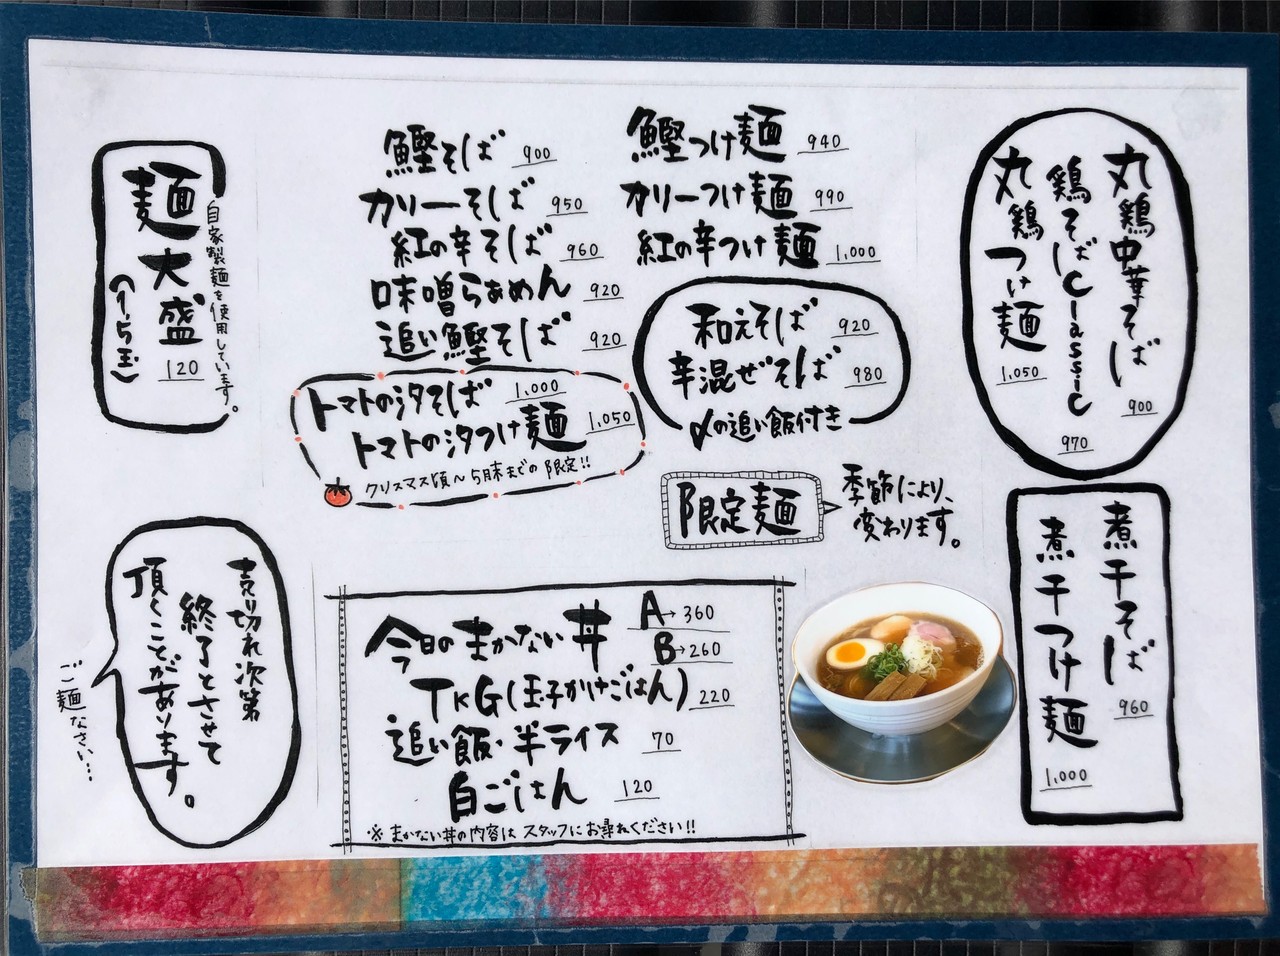 丸鶏中華そば 900
鶏そばClassic 970
丸鶏つけ麺 1,050
鰹そば 900
カリーそば 950
紅の辛そば 960
味噌らぁめん 920
追い鰹そば 920
鰹つけ麺 940
カリーつけ麺 990
紅の辛つけ麺 1,000
和えそば 920
辛混ぜそば 980
〆の追い飯付き
トマトの汐そば 1,000
トマトの汐つけ麺 1,050
クリスマス頃〜5月末までの限定!!
限定麺
季節により、
変わります。
麺大盛
(1.5玉)
120
自家製麺を使用しています。
煮干そば 960
煮干つけ麺 1,000
今日のまかない丼 A→360
B→260
TKG(玉子かけごはん) 220
追い飯・半ライス 70
白ごはん 120
※まかない丼の内容はスタッフにお尋ねください!!
売り切れ次第
終了とさせて
頂くことがあります。
ご麺なさい…